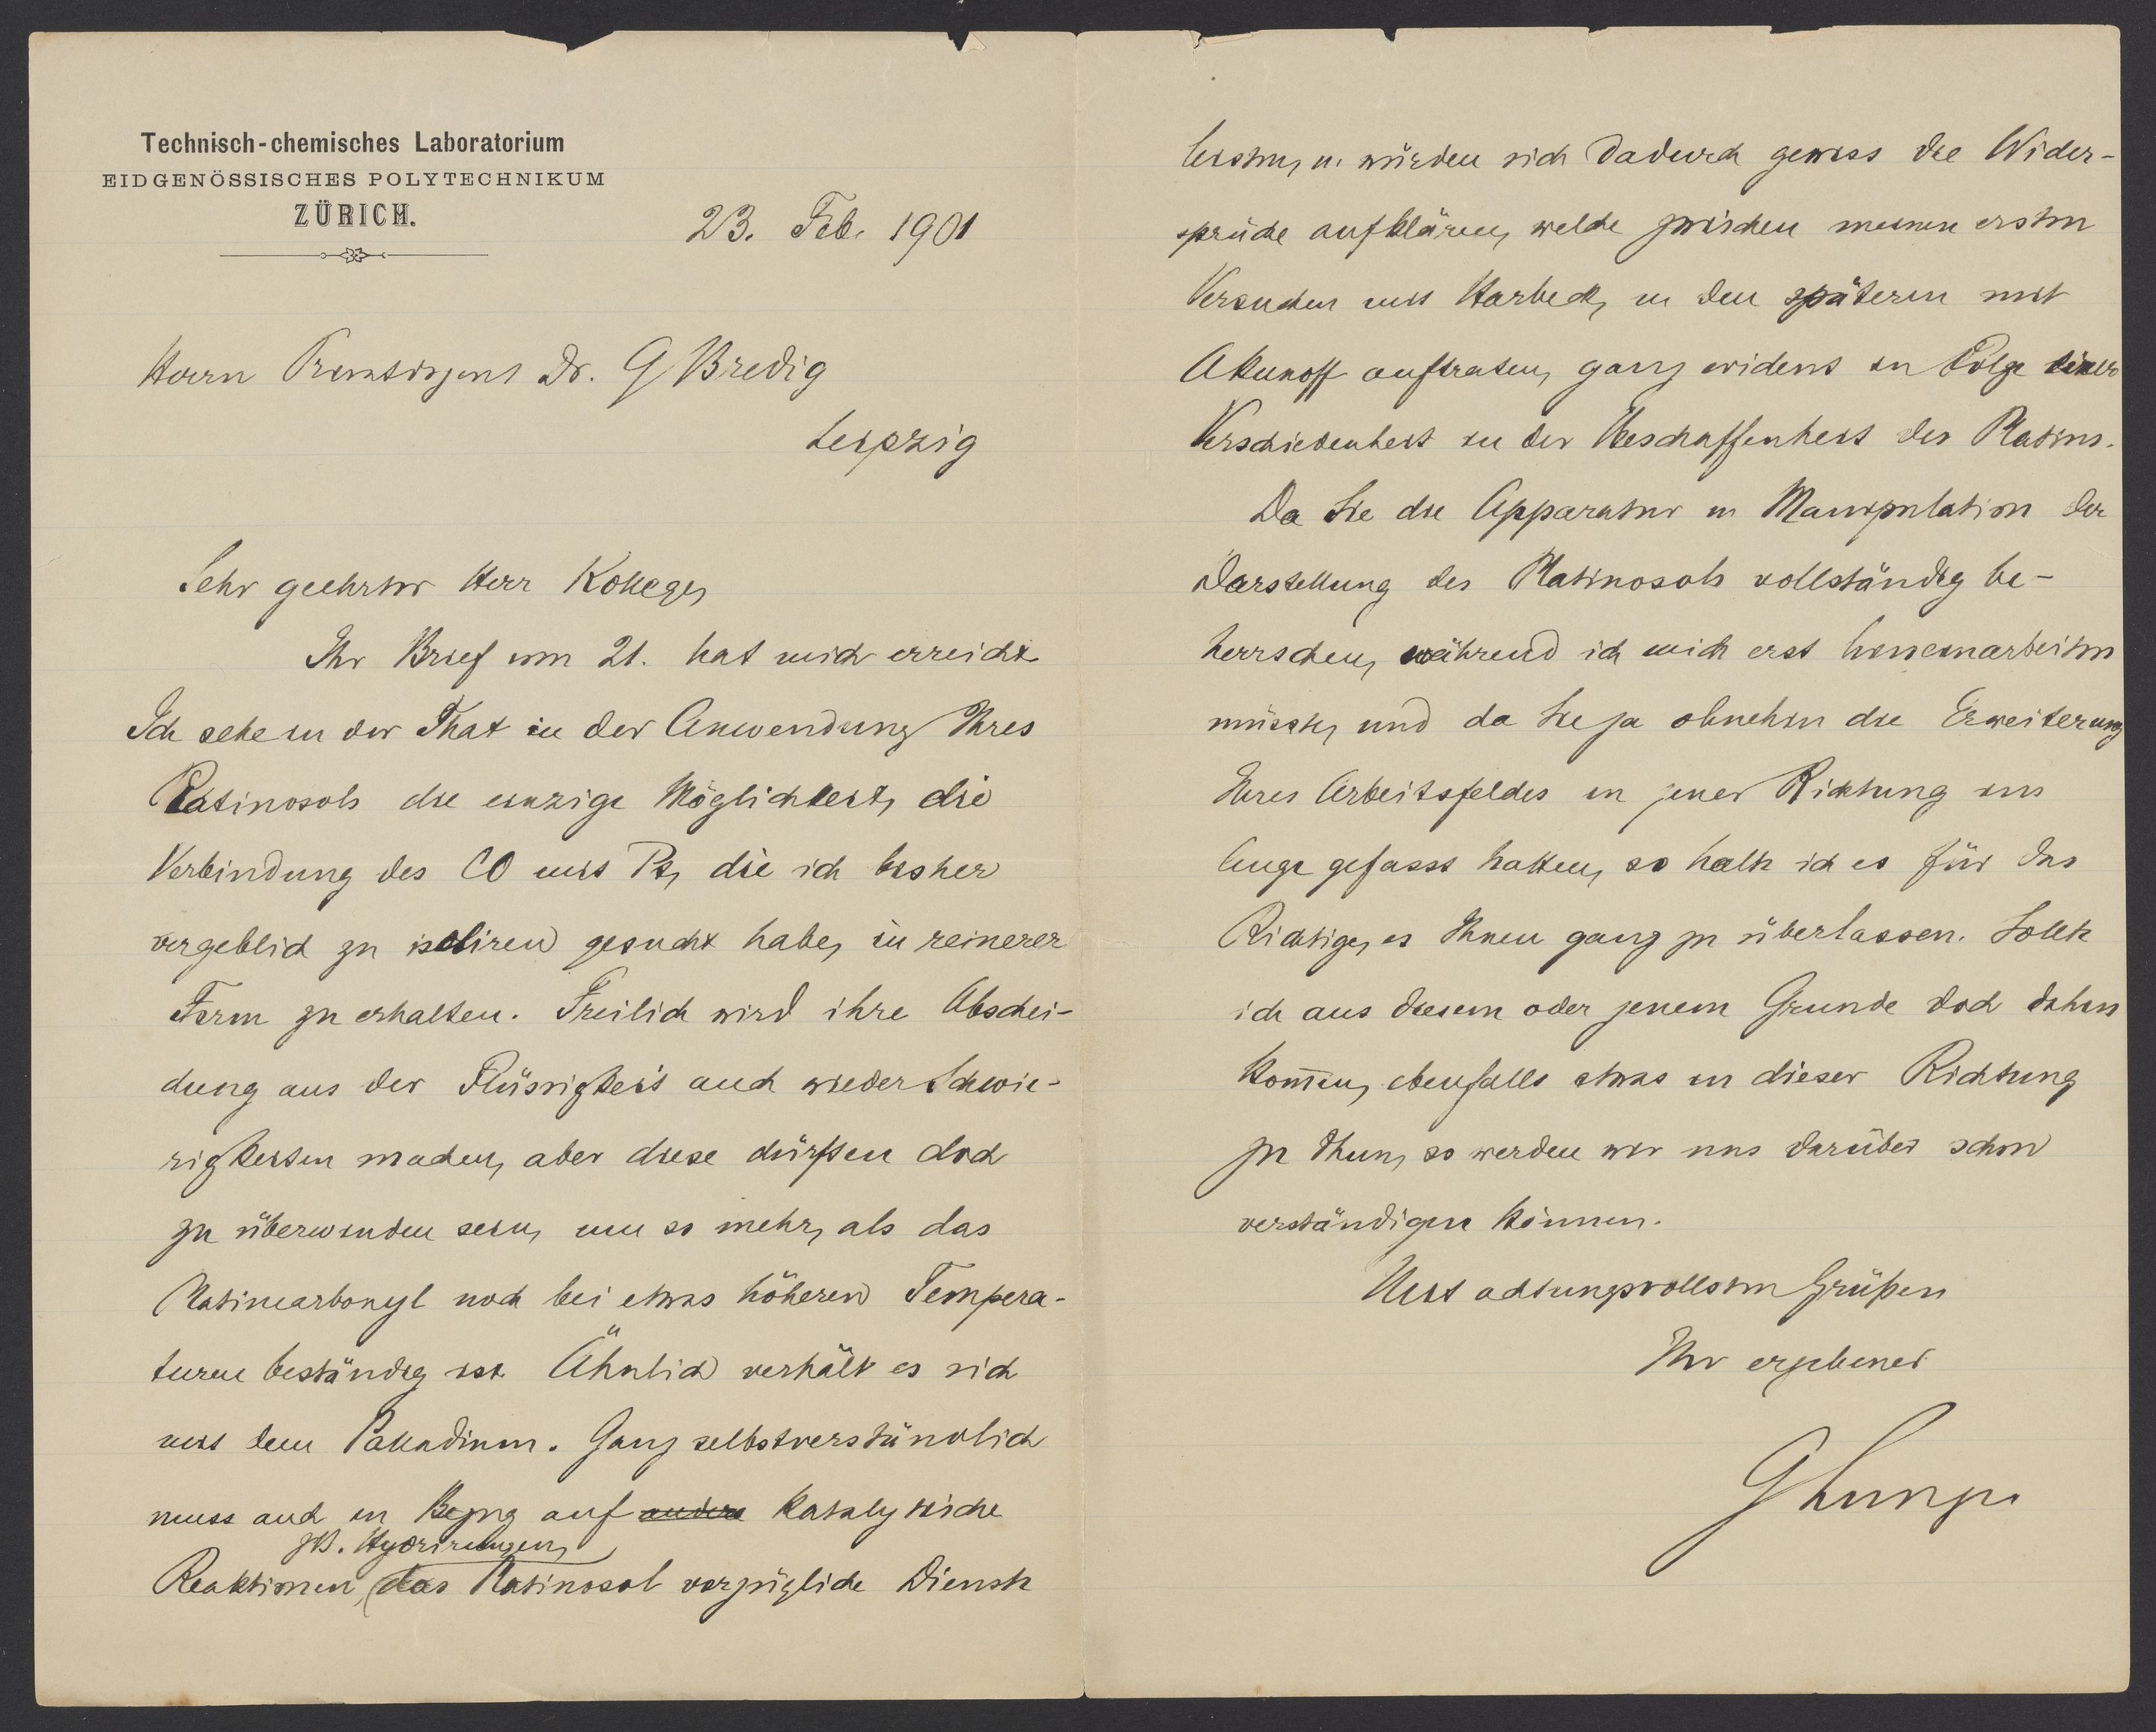 Technisch-chemisches Laboratorium
EIDGENÖSSISCHES POLYTECHNIKUM
ZÜRICH.
23. Feb. 1901
Herrn Privatdozent Dr. G Bredig
Leipzig
Sehr geehrter Herr Kollege,
Ihr Brief vom 21. hat mich erreicht.
Ich sehe in der That in der Anwendung Ihres
Platinosols die einzige Möglichkeit, die
Verbindung des CO mit Pt, die ich bisher
vergeblich zu isoliren gesucht habe, in reinerer
Form zu erhalten. Freilich wird ihre Abschei-
dung aus der Flüssigkeit auch wieder Schwie-
rigkeiten machen, aber diese dürften doch
zu überwinden sein, um so mehr, als das
Platincarbonyl noch bei etwas höheren Tempera-
turen beständig ist. Ähnlich verhält es sich
mit dem Palladium. Ganz selbstverständlich
muss auch in Bezug auf andere katalytische
zB. Hydrirungen,
Reaktionen, das Platinosol vorzügliche Dienste
leisten, u. würden sich dadurch gewiss die Wider-
sprüche aufklären, welche zwischen meinen ersten
Versuchen mit Harbeck, u den späteren mit
Akunoff auftraten, ganz evident in Folge einer
Verschiedenheit in der Beschaffenheit des Platins.
Da Sie die Apparatur u Manipulation der
Darstellung des Platinosols vollständig be-
herrschen, während ich mich erst hineinarbeiten
müsste, und da Sie ja ohnehin die Erweiterung
Ihres Arbeitsfeldes in jener Richtung ins
Auge gefasst hatten, so halte ich es für das
Richtige, es Ihnen ganz zu überlassen. Sollte
ich aus diesem oder jenem Grunde doch dahin
kom̄en, ebenfalls etwas in dieser Richtung
zu thun, so werden wir uns darüber schon
verständigen können.
Mit achtungsvollsten Grüßen
Ihr ergebener
G Lunge